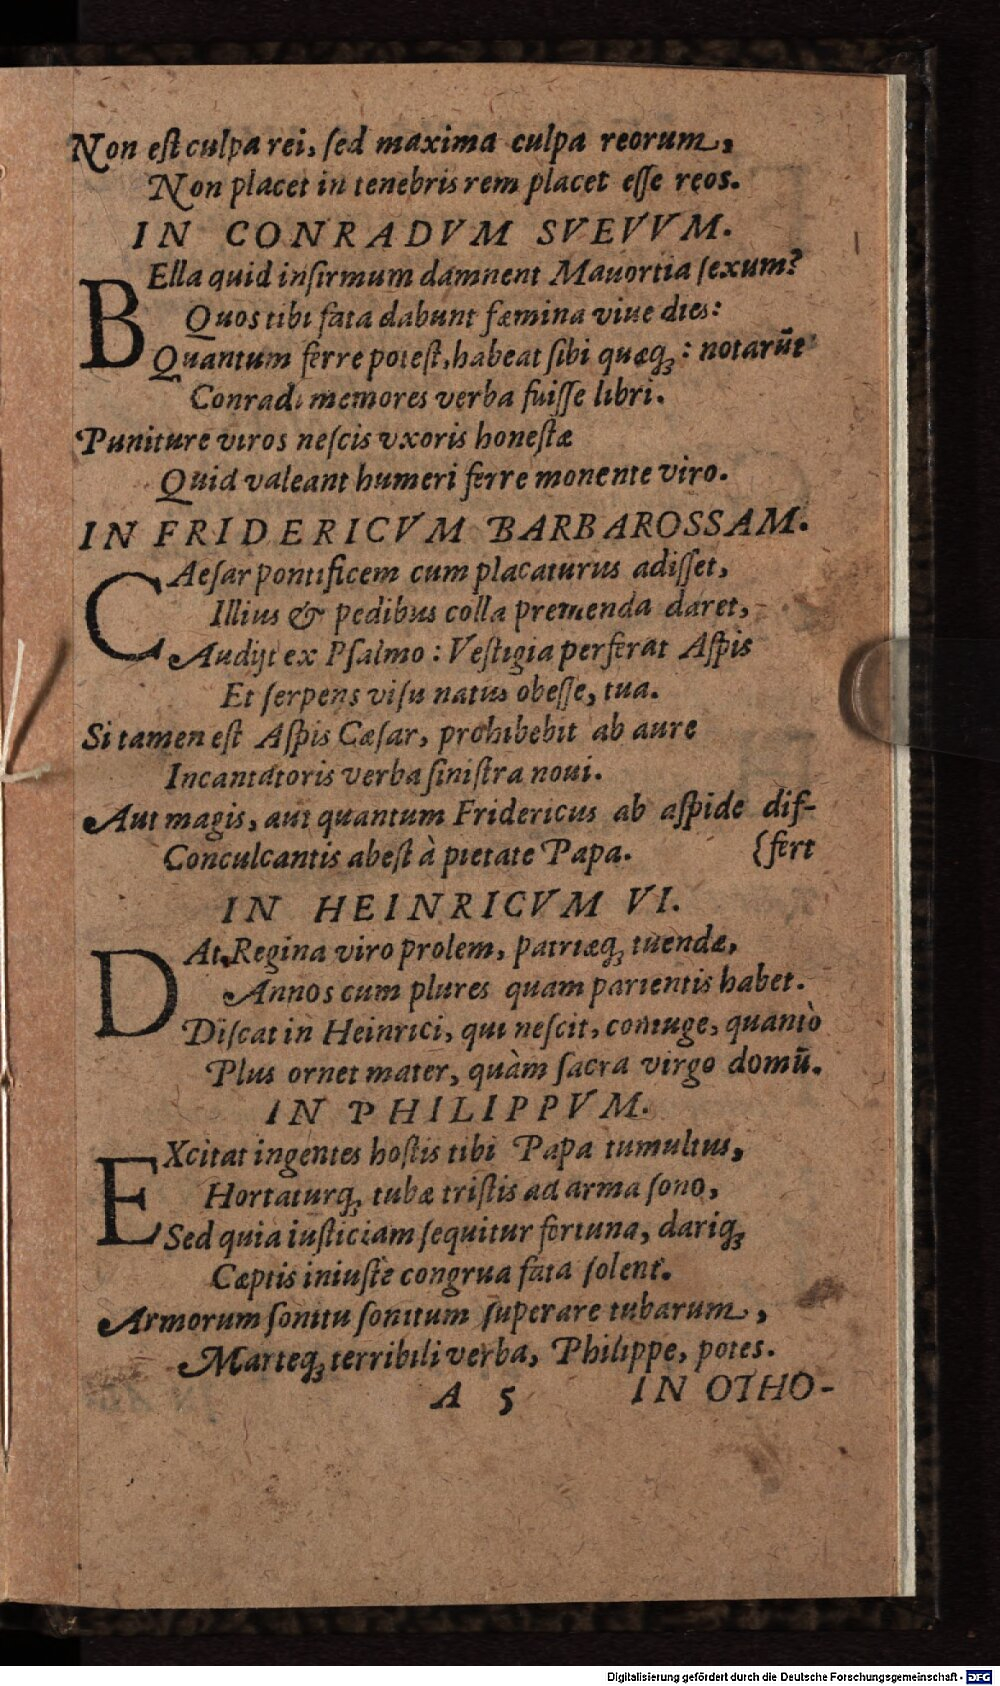 Non eſt culpa rei, ſed maxima culpa reorum,
Non placet in tenebris rem placet eſſe reos.
IN CONRADVM SVEVVM.
BElla quid infirmum damnent Mauortia ſexum?
Quos tibi fata dabunt fæmina viue dies:
Quantum ferre poteſt, habeat ſibi quæq;: notarūt
Conradi memores verba fuiſſe libri.
Puniture viros neſcis vxoris honeſtæ
Quid valeant humeri ferre monente viro.
IN FRIDERICVM BARBAROSSAM.
CAeſar pontificem cum placaturus adiſſet,
Illius & pedibus colla premenda daret,
Audijt ex Pſalmo: Veſtigia perferat Aſpis
Et ſerpens viſu natus obeſſe, tua.
Si tamen eſt Aſpis Cæſar, prohibebit ab aure
Incantatoris verba ſiniſtra noui.
Aut magis, aut quantum Fridericus ab aſpide dif-
Conculcantis abeſt à pietate Papa. {fert
IN HEINRICVM VI.
DAt Regina viro prolem, patriæq; tuendæ,
Annos cum plures quam parientis habet.
Diſcat in Heinrici, qui neſcit, coniuge, quantò
Plus ornet mater, quàm ſacra virgo domū.
IN PHILIPPVM.
EXcitat ingentes hoſtis tibi Papa tumultus,
Hortaturq; tubæ triſtis ad arma ſono,
Sed quia iuſticiam ſequitur fortuna, dariq;
Cæptis iniuſtè congrua fata ſolent.
Armorum ſonitu ſonitum ſuperare tubarum,
Marteq; terribili verba, Philippe, potes.
A 5 IN OTHO-
Digitalisierung gefördert durch die Deutsche Forschungsgemeinschaft - DFG